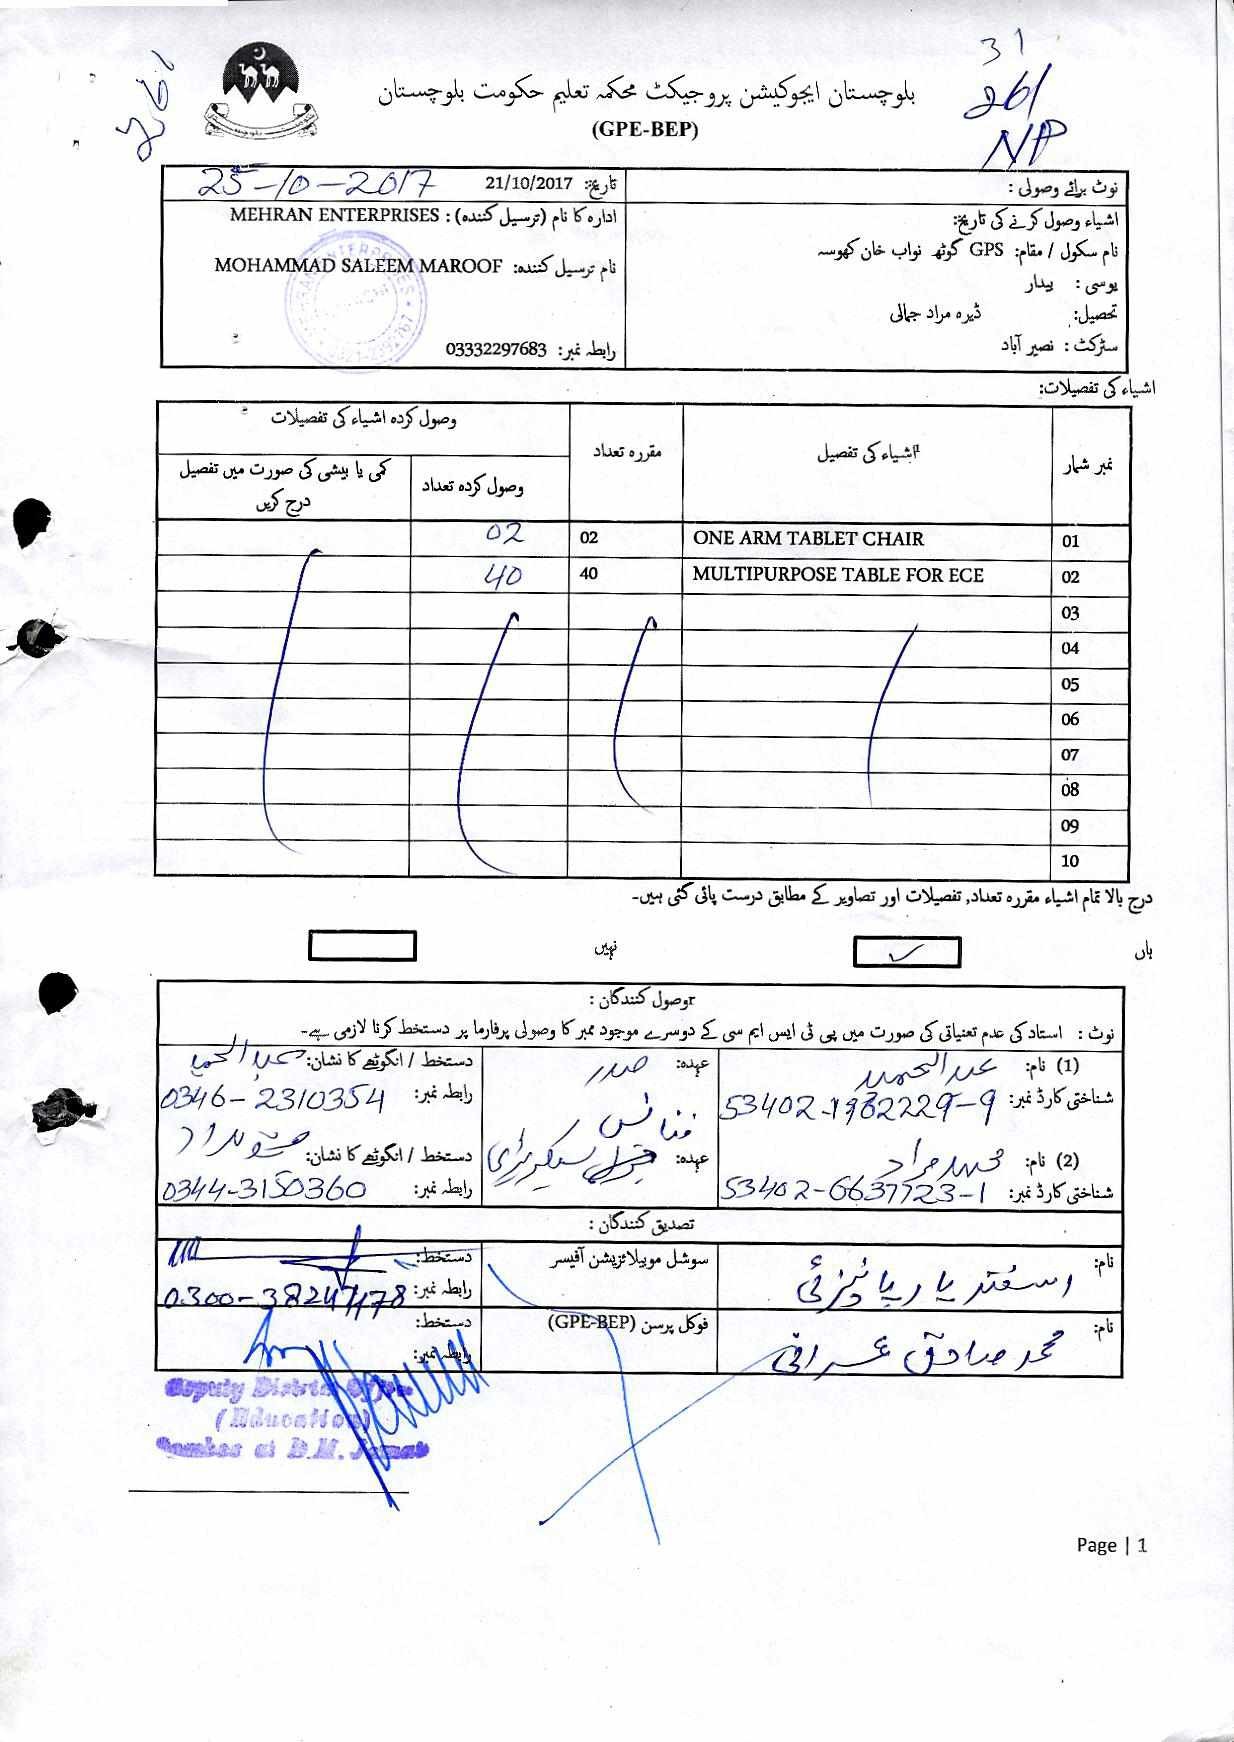 31
261
NP
بلوچستان ایجوکیشن پروجیکٹ محکمہ تعلیم حکومت بلوچستان
(GPE-BEP)
نوٹ برائے وصولی :
تاریخ: 21/10/2017 25-10-2017
اشیاء وصول کرنے کی تاریخ:
ادارہ کا نام (ترسیل کنندہ) : MEHRAN ENTERPRISES
نام سکول / مقام: GPS گوٹھ نواب خان کھوسہ
نام ترسیل کنندہ: MOHAMMAD SALEEM MAROOF
یوسی : بیدار
تحصیل: ڈیرہ مراد جمالی
سٹرکٹ : نصیر آباد
رابطہ نمبر: 03332297683
اشیاء کی تفصیلات:
نمبر شمار اشیاء کی تفصیل مقررہ تعداد وصول کردہ اشیاء کی تفصیلات
وصول کردہ تعداد کمی یا بیشی کی صورت میں تفصیل درج کریں
01 ONE ARM TABLET CHAIR 02 02
02 MULTIPURPOSE TABLE FOR ECE 40 40
03
04
05
06
07
08
09
10
درج بالا تمام اشیاء مقررہ تعداد, تفصیلات اور تصاویر کے مطابق درست پائی گئی ہیں۔
ہاں ✓ نہیں
وصول کنندگان :
نوٹ : استاد کی عدم تعیناتی کی صورت میں پی ٹی ایس ایم سی کے دوسرے موجود ممبر کا وصولی پرفارما پر دستخط کرنا لازمی ہے۔
(1) نام: عبدالحمید عہدہ: صدر دستخط / انگوٹھے کا نشان: عبدالحمید
شناختی کارڈ نمبر: 53402-1982229-9 رابطہ نمبر: 0346-2310354
(2) نام: محمد مراد عہدہ: فنانس سیکریٹری دستخط / انگوٹھے کا نشان:
شناختی کارڈ نمبر: 53402-6637723-1 رابطہ نمبر: 0344-3150360
تصدیق کنندگان :
نام: اسفندیار پانیزئی سوشل موبیلائزیشن آفیسر دستخط:
رابطہ نمبر: 0300-3824778
نام: محمد صادق عمرانی فوکل پرسن (GPE-BEP) دستخط:
رابطہ نمبر:
Deputy District Officer
(Education)
Page | 1